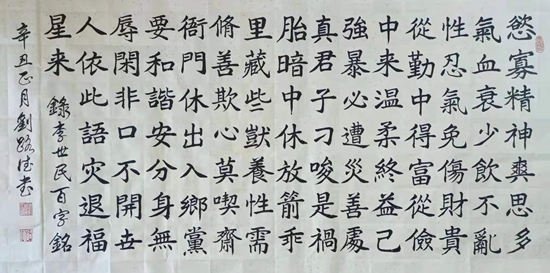 慾寡精神爽思多
氣血衰少飲不亂
性忍氣免傷財貴
從勤中得富從儉
中来温柔終益己
強暴必遭災善處
真君子刁唆是禍
胎暗中休放箭乖
里藏些獃養性需
脩善欺心莫喫齋
衙門休出入鄉黨
要和諧安分身無
辱閑非口不開世
人依此語灾退福
星来
錄李世民百字銘
辛丑正月劉路書